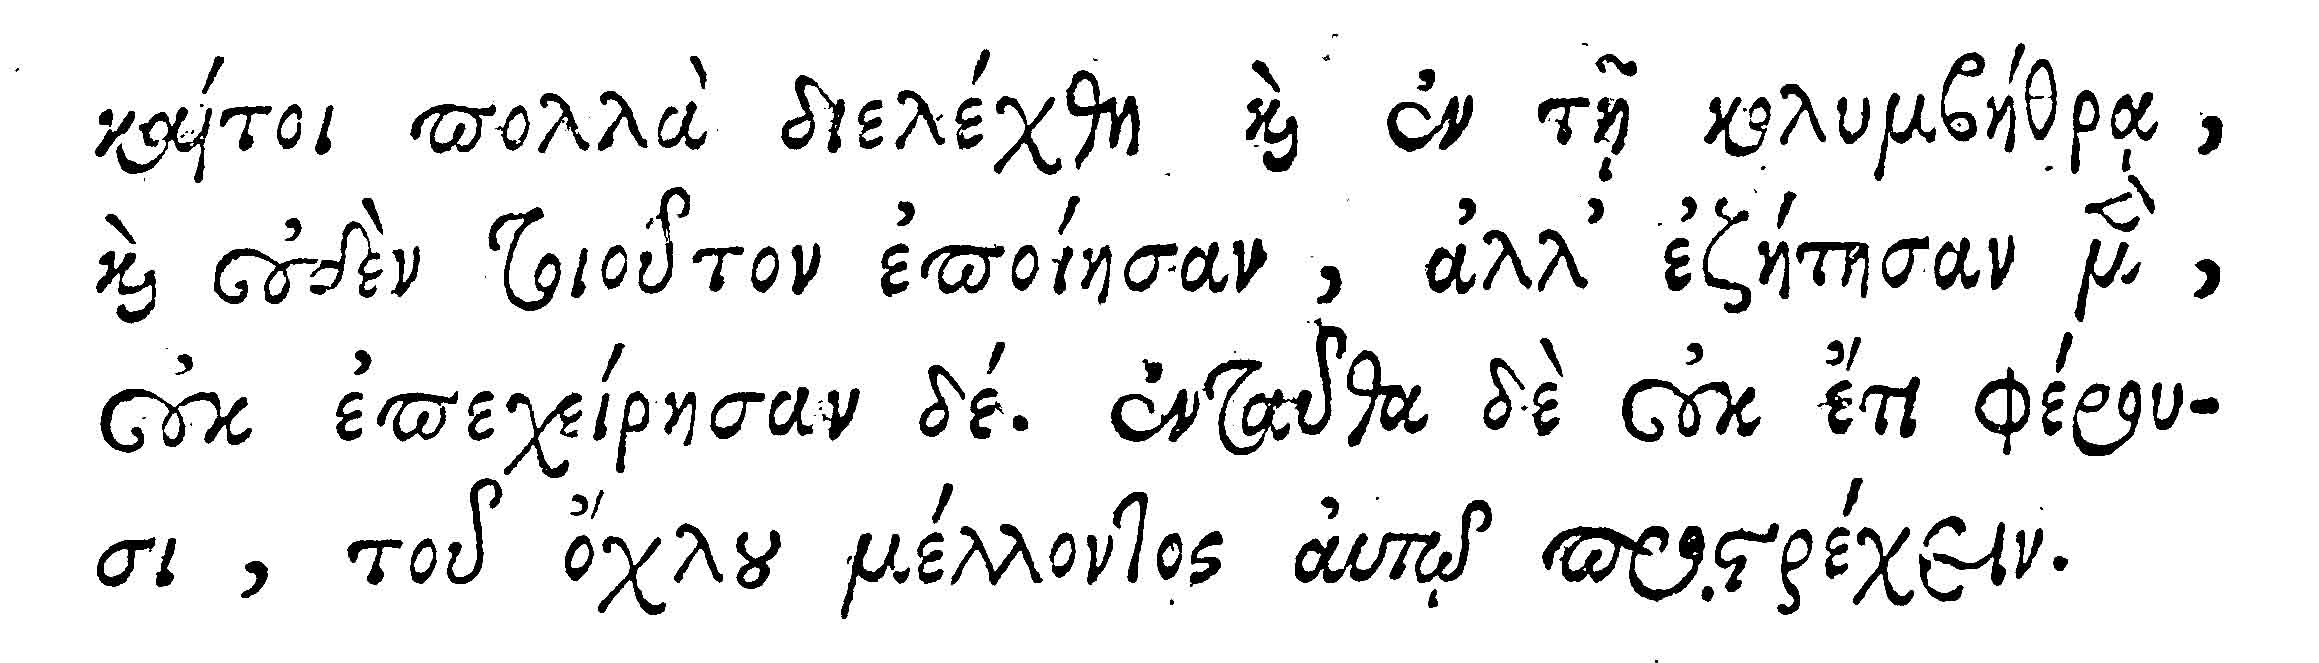 καίτοι πολλὰ διελέχθη καὶ ἐν τῇ κολυμβήθρᾳ,
καὶ οὐδὲν τοιοῦτον ἐποίησαν, ἀλλ' ἐζήτησαν μὲν,
οὐκ ἐπεχείρησαν δέ. ἐνταῦθα δὲ οὐκ ἔτι φέρου-
σι, τοῦ ὄχλου μέλλοντος αὐτῷ προστρέχειν.